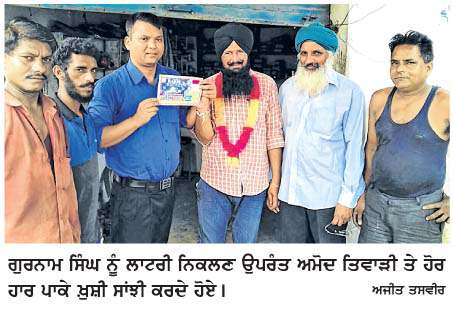 ਗੁਰਨਾਮ ਸਿੰਘ ਨੂੰ ਲਾਟਰੀ ਨਿਕਲਣ ਉਪਰੰਤ ਅਮੋਦ ਤਿਵਾੜੀ ਤੇ ਹੋਰ
ਹਾਰ ਪਾਕੇ ਖ਼ੁਸ਼ੀ ਸਾਂਝੀ ਕਰਦੇ ਹੋਏ। ਅਜੀਤ ਤਸਵੀਰ